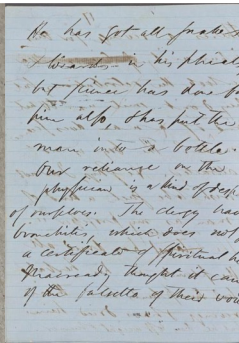 He has got all snakes
& lizards in his phials
but science has done for
him also, & has put the
man into a bottle.
Our reliance on the
physician is a kind of desp
of ourselves. The clergy have
bronchitis, which does not
a certificate of spiritual h
Macready thought it came
of the falsetto of their voi